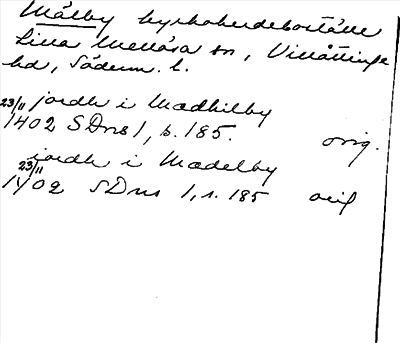 Målby kyrkoherdeboställe
Lilla Mellösa sn, Villåttinge
hd, Söderm. l.
23/11 jordh i Madhilby
1402 SDns 1, s. 185. orig.
jordh i Madelby
23/11
1402 SDns 1, s. 185 orig